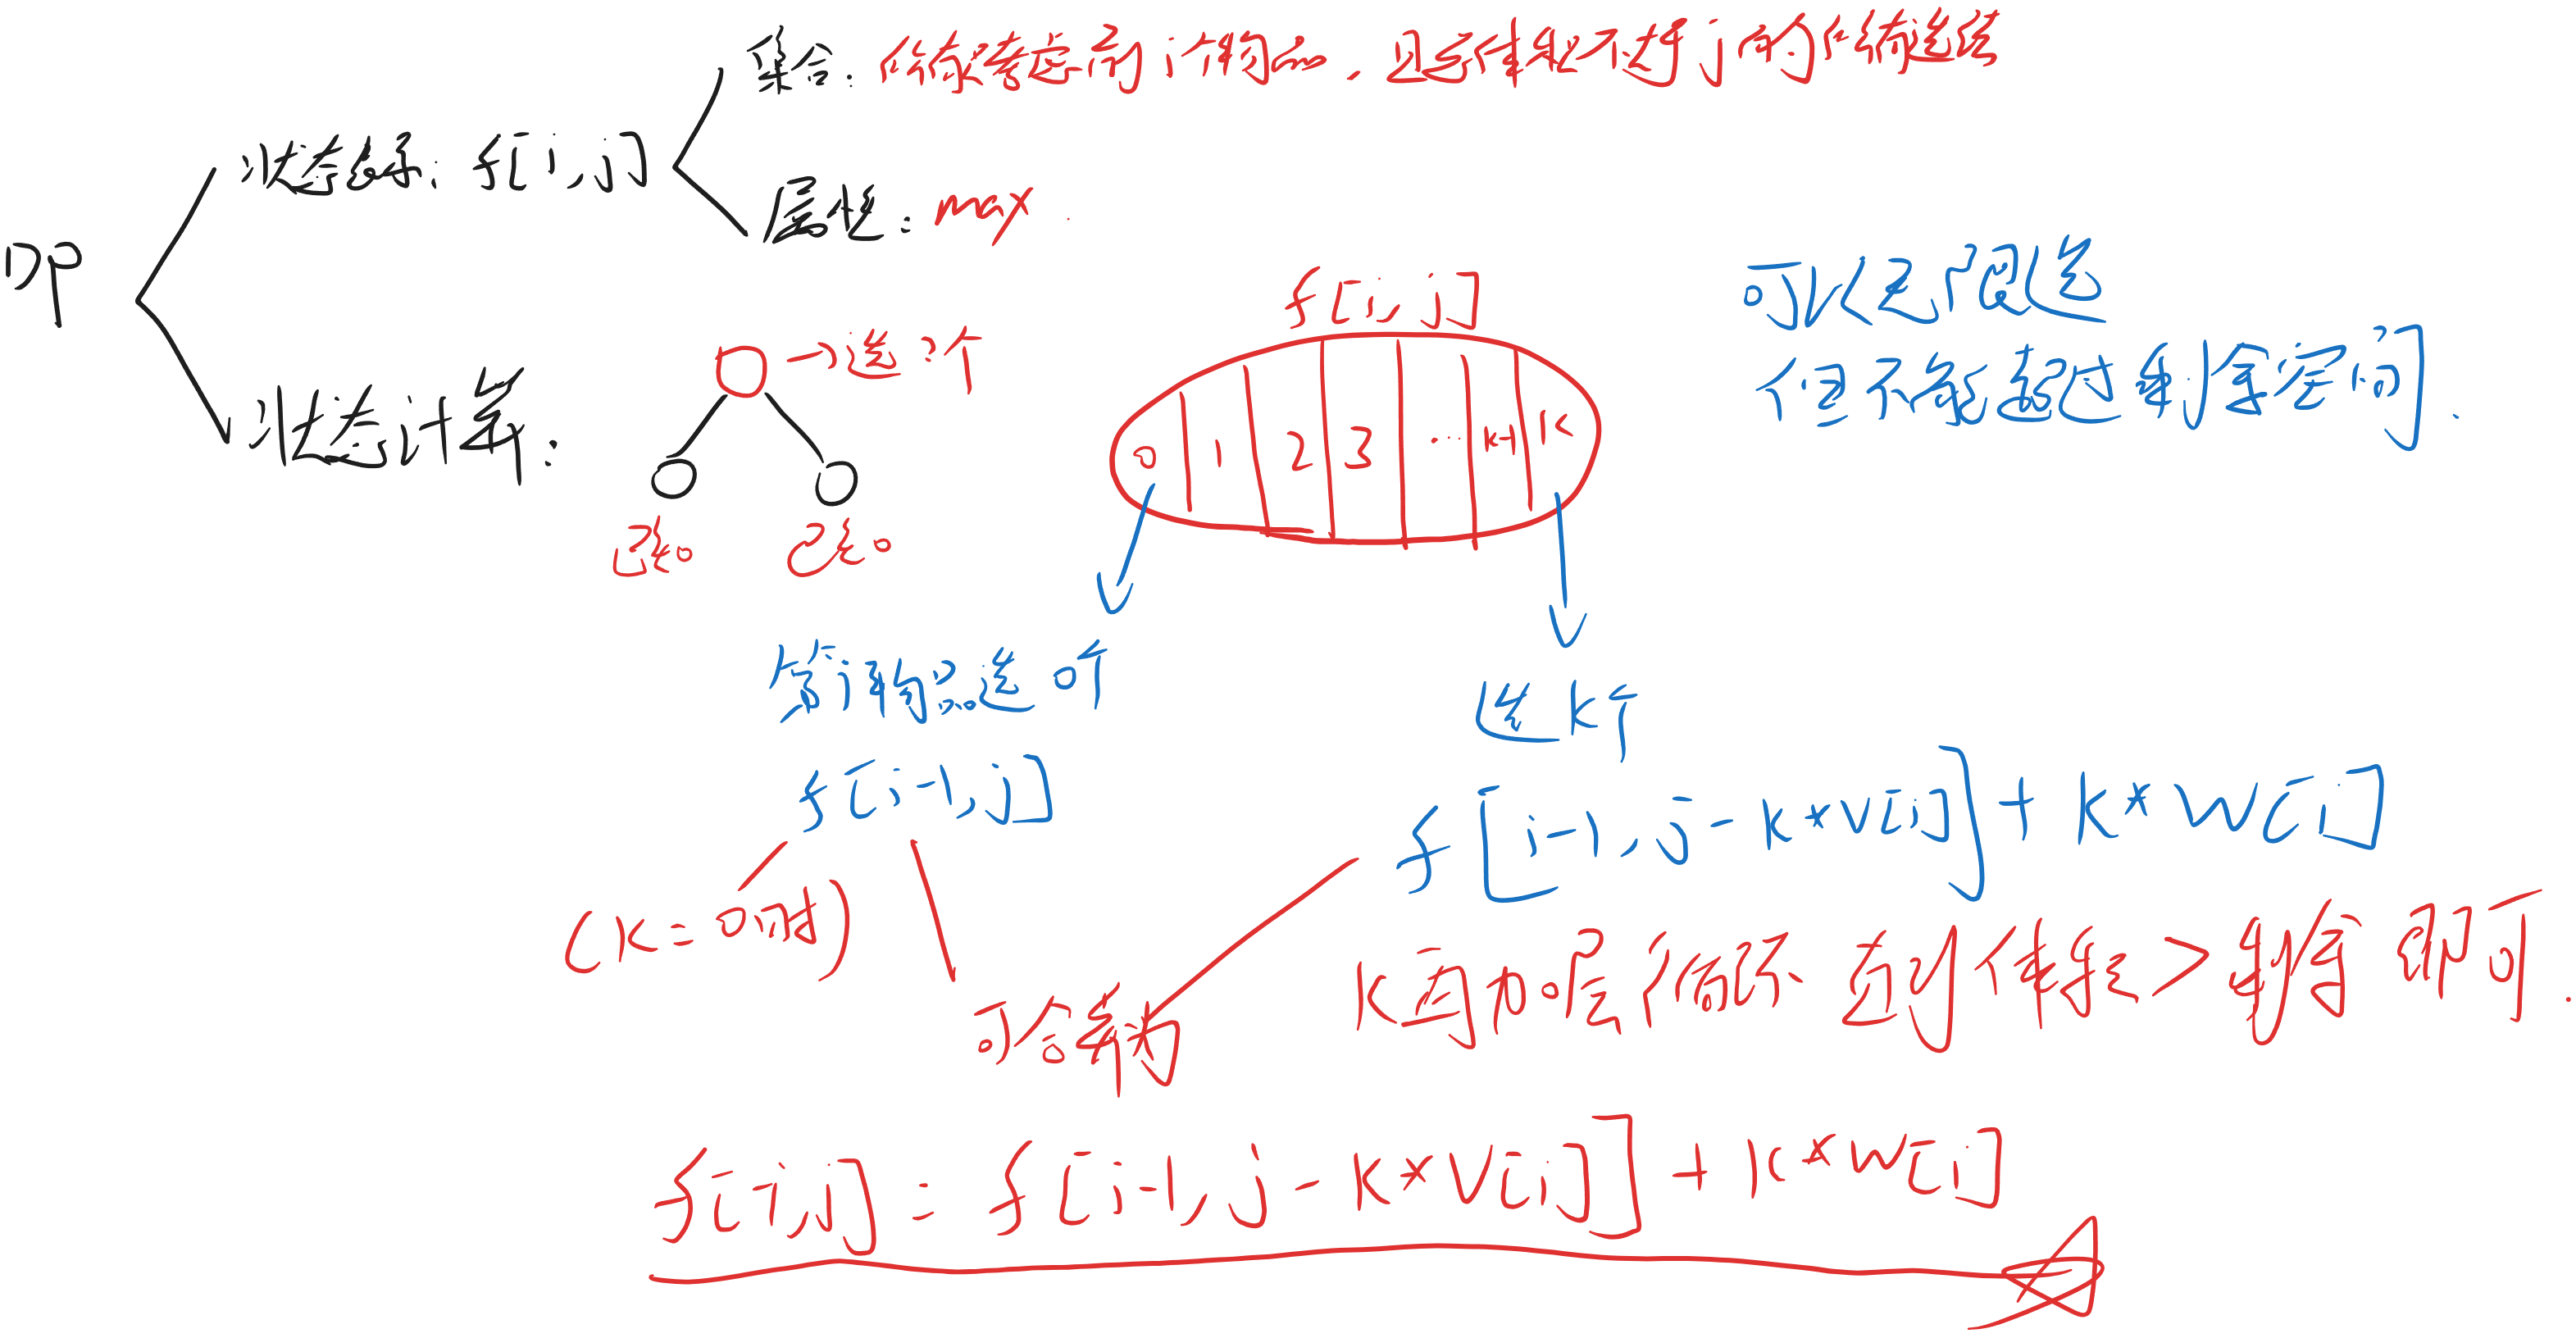 集合：所有只考虑前i个物品，且总体积不大于j的所有选法
DP
状态表示：f[i,j]
属性：max
可以无限选
但不能超过剩余空间.
f[i,j]
状态计算：
→选?个
0 1 2 3 ... k-1 k
已知 已知
第i种物品选0个
选k个
f[i-1,j]
f[i-1,j-k*v[i]]+k*w[i]
(k=0时)
k再加0层循环 直到体积>剩余 即可.
可合并为
f[i,j]=f[i-1,j-k*v[i]]+k*w[i]